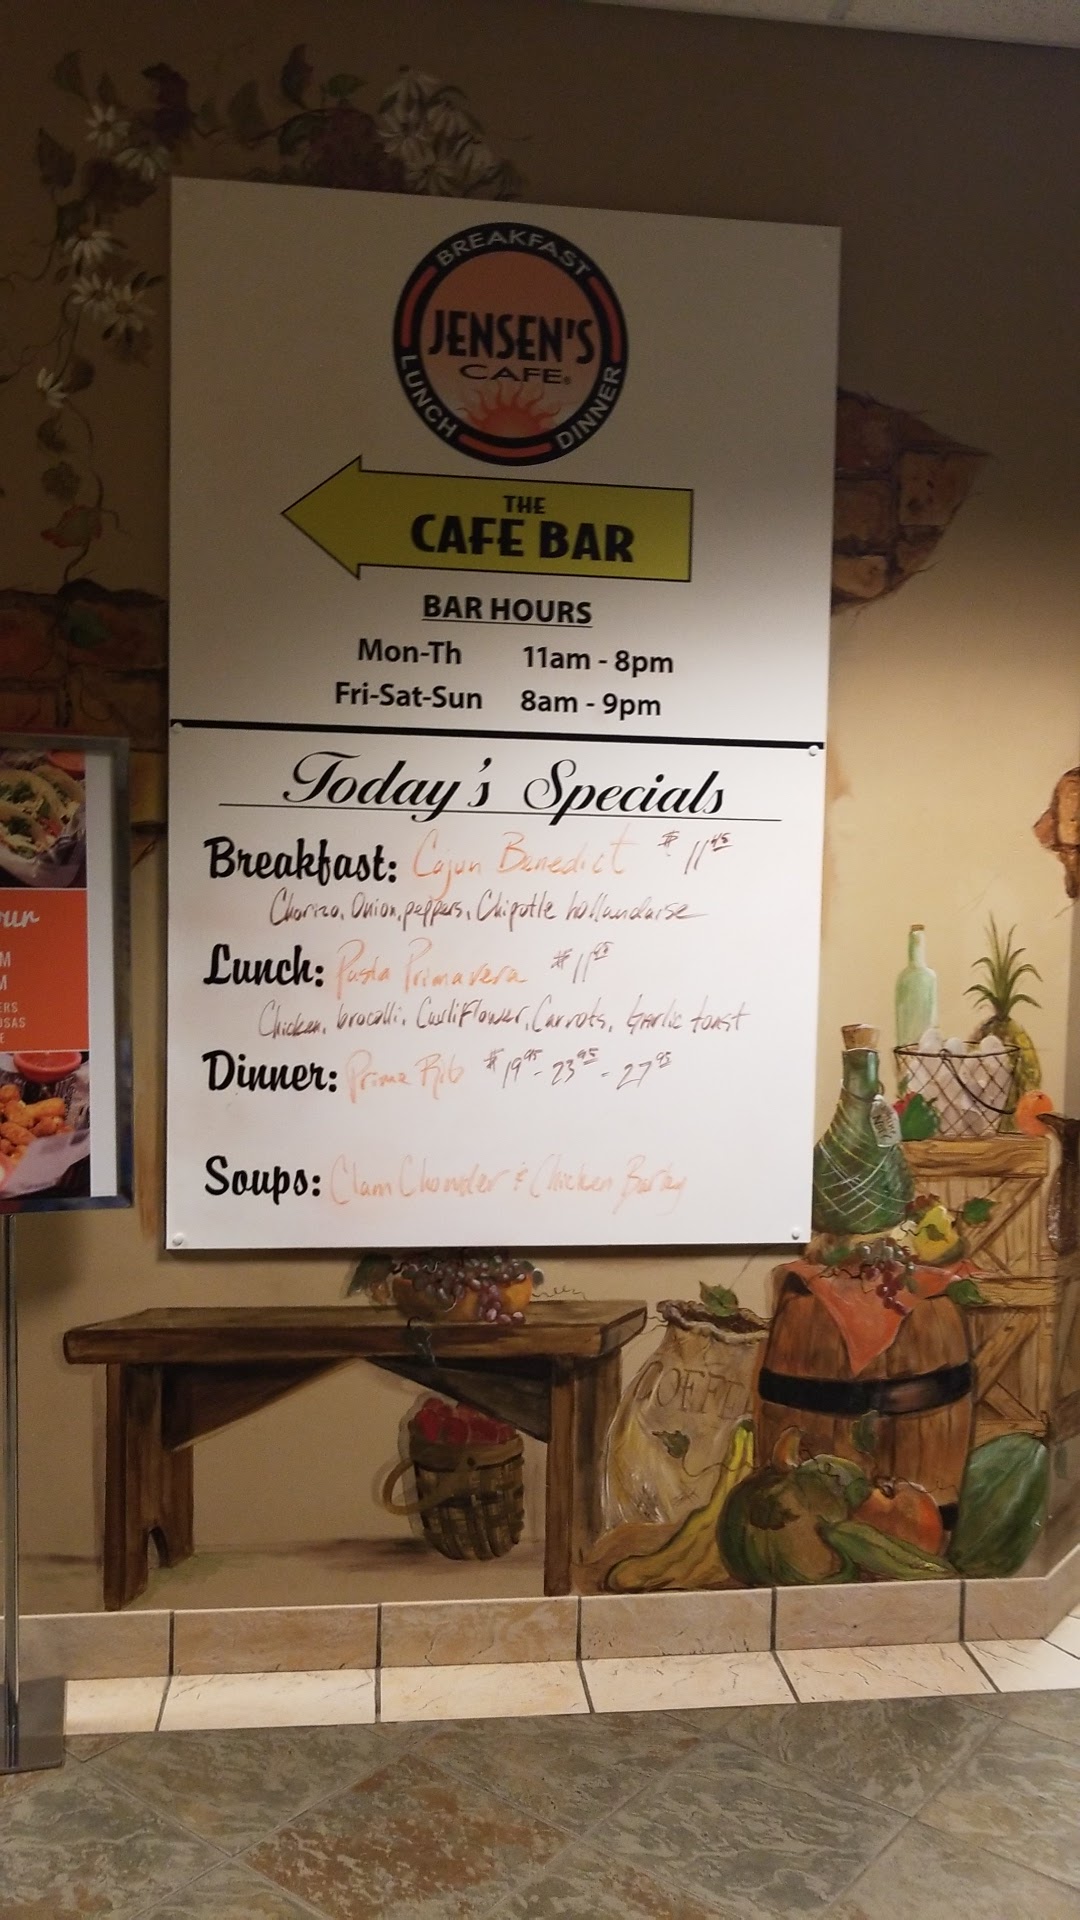 BREAKFAST
JENSEN'S
CAFE®
LUNCH
DINNER
THE
CAFE BAR
BAR HOURS
Mon-Th 11am - 8pm
Fri-Sat-Sun 8am - 9pm
Today's Specials
Breakfast: Cajun Benedict $11.45
Chorizo, Onion, peppers, Chipotle hollandaise
Lunch: Pasta Primavera $11.45
Chicken, brocolli, Cauliflower, Carrots, Garlic toast
Dinner: Prime Rib $19.95 - 23.95 - 27.95
Soups: Clam Chowder & Chicken Barley
COFFEE